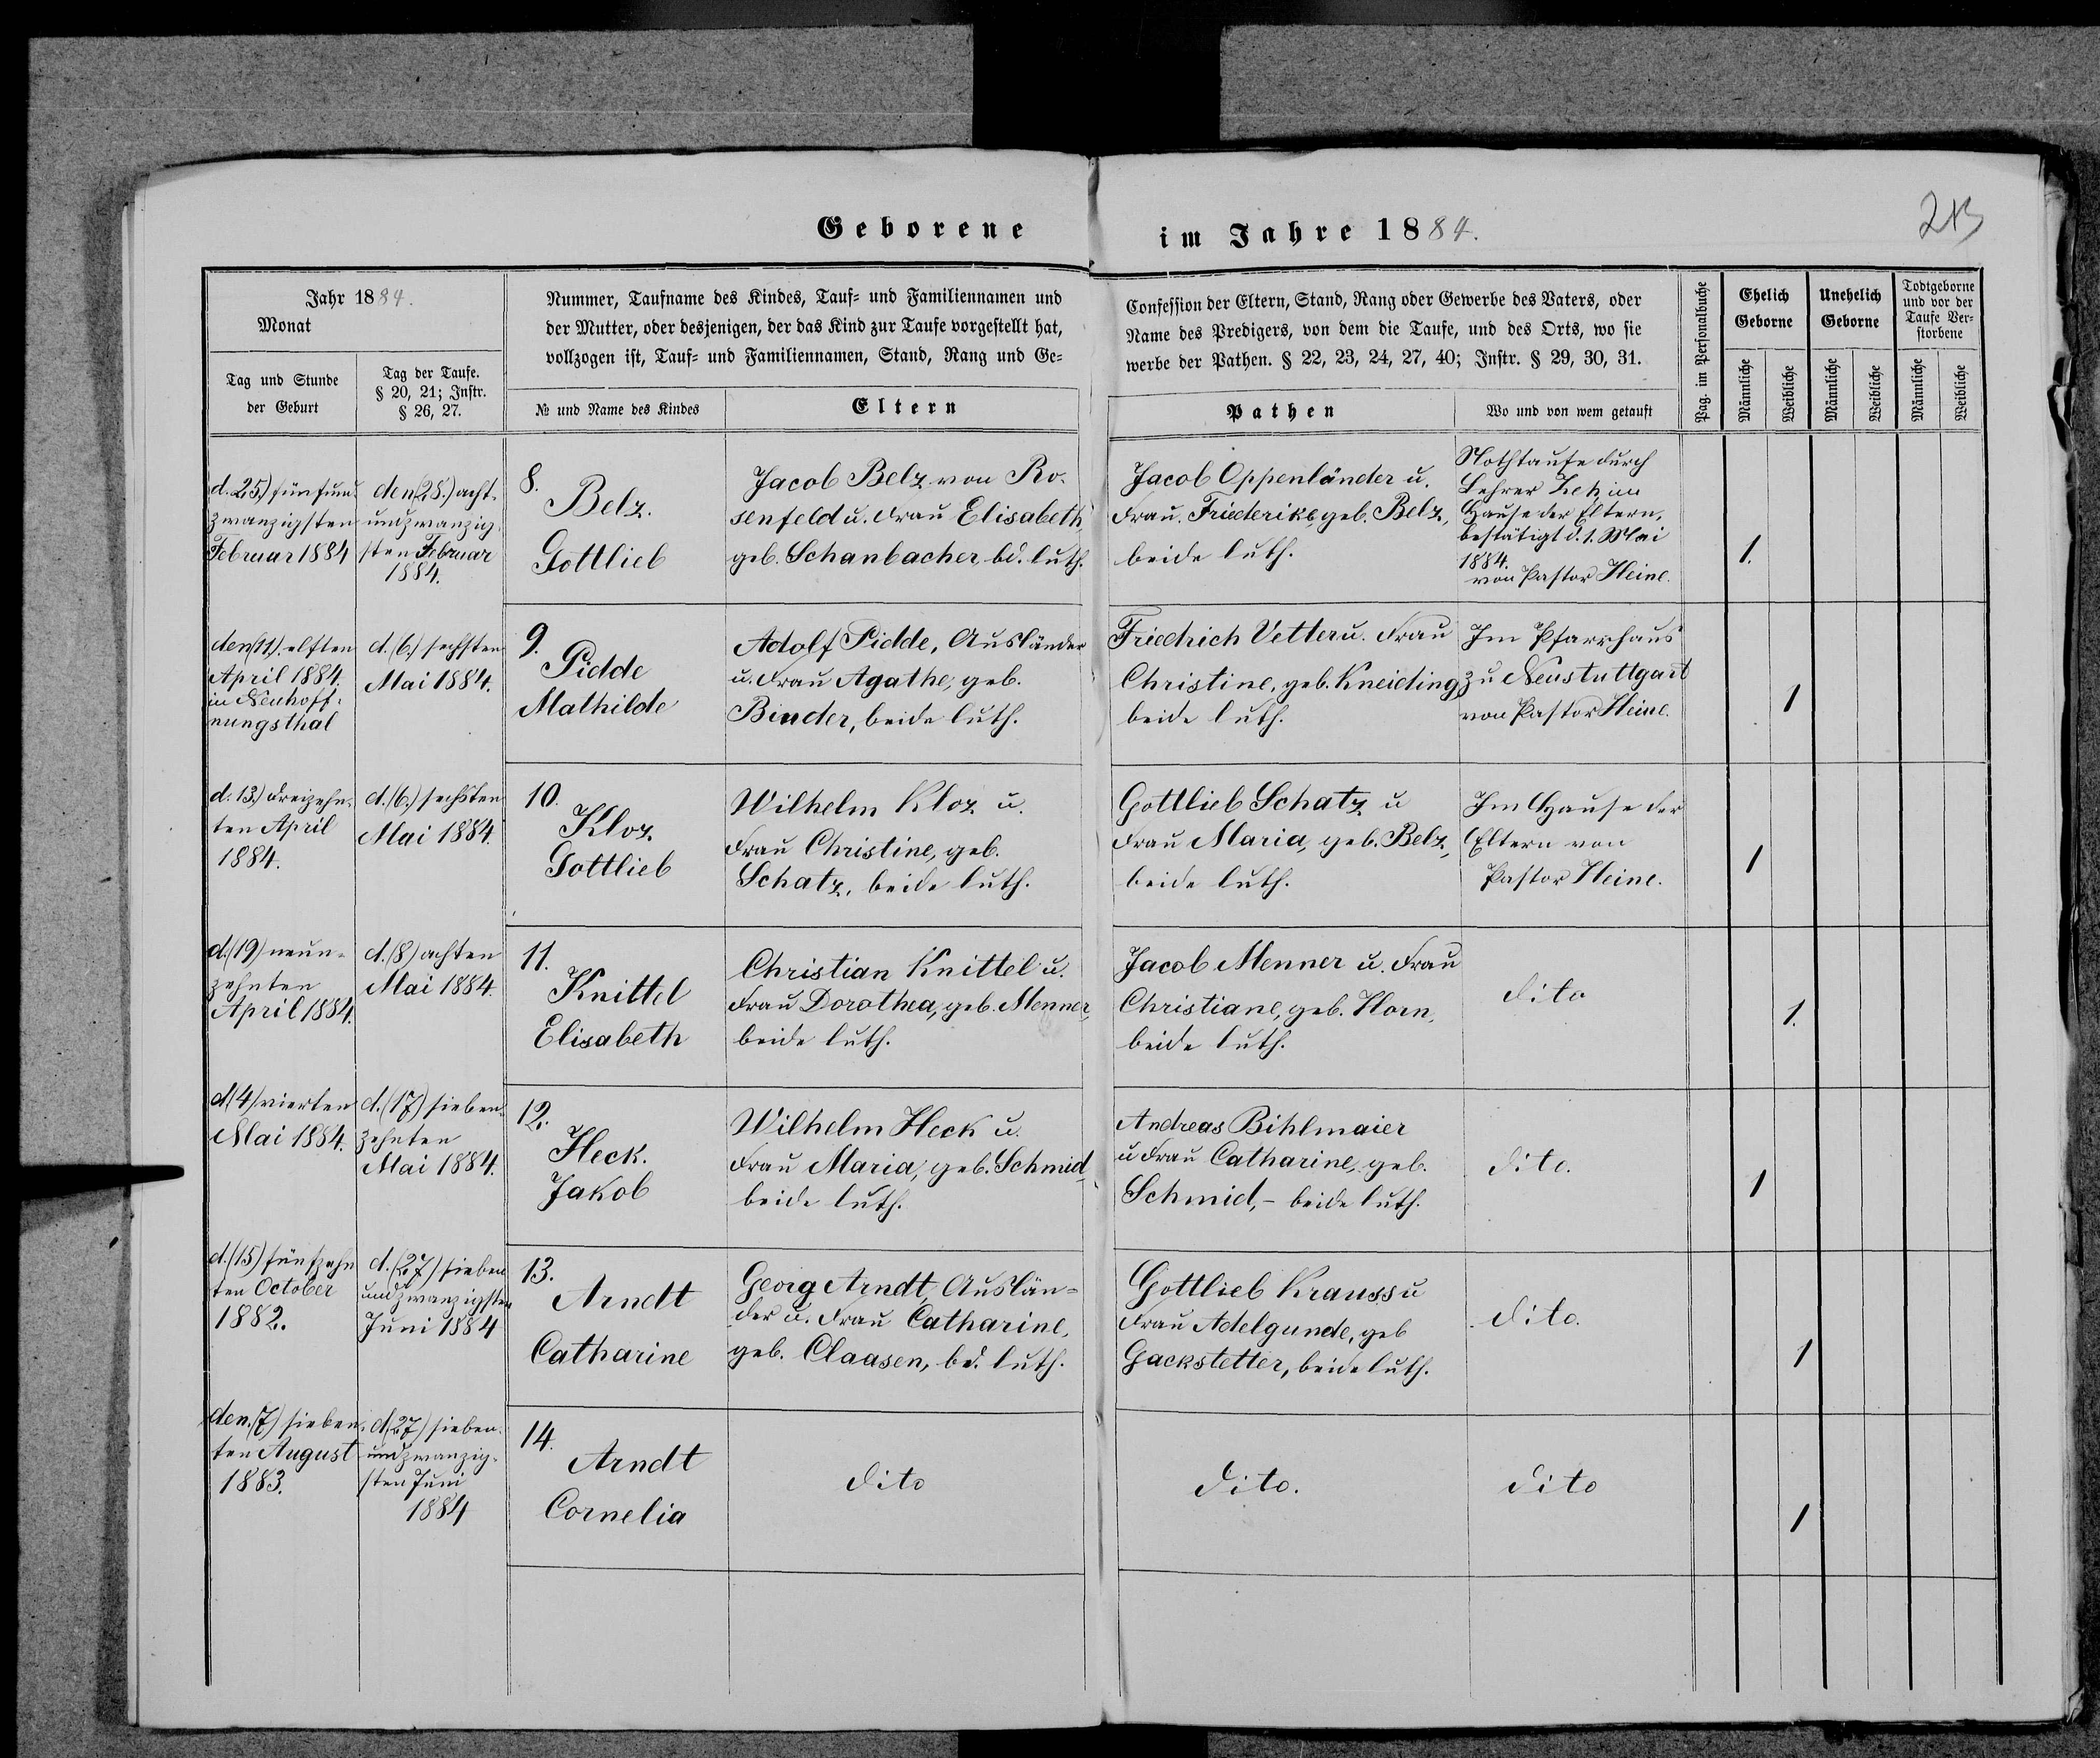 Geborene im Jahre 1884.
213
Jahr 1884.
Monat
Tag und Stunde
der Geburt
Tag der Taufe.
§ 20, 21; Instr.
§ 26, 27.
Nummer, Taufname des Kindes, Tauf= und Familiennamen und
der Mutter, oder desjenigen, der das Kind zur Taufe vorgestellt hat,
vollzogen ist, Tauf= und Familiennamen, Stand, Rang und Ge=
№ und Name des Kindes
Eltern
Confession der Eltern, Stand, Rang oder Gewerbe des Vaters, oder
Name des Predigers, von dem die Taufe, und des Orts, wo sie
werbe der Pathen. § 22, 23, 24, 27, 40; Instr. § 29, 30, 31.
Pathen
Wo und von wem getauft
Pag. im Personalbuche
Ehelich
Geborne
Unehelich
Geborne
Todtgeborne
und vor der
Taufe Ver=
storbene
Männliche
Weibliche
Männliche
Weibliche
Männliche
Weibliche
d. 25.) fünfund-
zwanzigsten
Februar 1884
den (28.) acht-
undzwanzig-
sten Februar
1884.
8.
Belz.
Gottlieb
Jacob Belz von Ro-
senfeld u. Frau Elisabeth,
geb. Schanbacher, bd. luth.
Jacob Oppenländer u.
Frau Friederike, geb. Belz,
beide luth.
Nothtaufe durch
Lehrer im
Hause der Eltern,
bestätigt d. 1. Mai
1884.
von Pastor Heine.
1.
den (11.) elften
April 1884.
in Neuhoff-
nungsthal
d. (6.) sechsten
Mai 1884.
9.
Pidde
Mathilde
Adolf Pidde, Ausländer
u. Frau Agathe, geb.
Binder, beide luth.
Friedrich Vetter u. Frau
Christine, geb. Kneiding,
beide luth.
Im Pfarrhaus
zu Neustuttgart
von Pastor Heine.
1
d. 13.) dreizehn-
ten April
1884.
d. (6.) sechsten
Mai 1884.
10.
Kloz
Gottlieb
Wilhelm Kloz u.
Frau Christine, geb.
Schatz, beide luth.
Gottlieb Schatz u
Frau Maria, geb. Belz,
beide luth.
Im Hause der
Eltern von
Pastor Heine.
1
d. (19) neun-
zehnten
April 1884.
d. (8) achten
Mai 1884.
11.
Knittel
Elisabeth
Christian Knittel u.
Frau Dorothea, geb. Menner,
beide luth.
Jacob Menner u. Frau
Christiane, geb. Horn,
beide luth.
dito
1.
d (4) vierten
Mai 1884.
d. (17) sieben-
zehnten
Mai 1884.
12.
Heck.
Jakob
Wilhelm Heck u.
Frau Maria, geb. Schmid,
beide luth.
Andreas Bihlmaier
u Frau Catharine, geb.
Schmid, - beide luth.
dito.
1
d. (15) fünfzehn
ten October
1882.
d. (27) sieben
undzwanzigsten
Juni 1884
13.
Arndt
Catharine
Georg Arndt, Auslän=
der u. Frau Catharine,
geb. Claasen, bd. luth.
Gottlieb Krauss u
Frau Adelgunde, geb
Gackstetter, beide luth.
dito.
1
den. (7) sieben-
ten August
1883.
d. (27) sieben-
undzwanzig-
sten Juni
1884
14.
Arndt
Cornelia
dito
dito.
dito
1